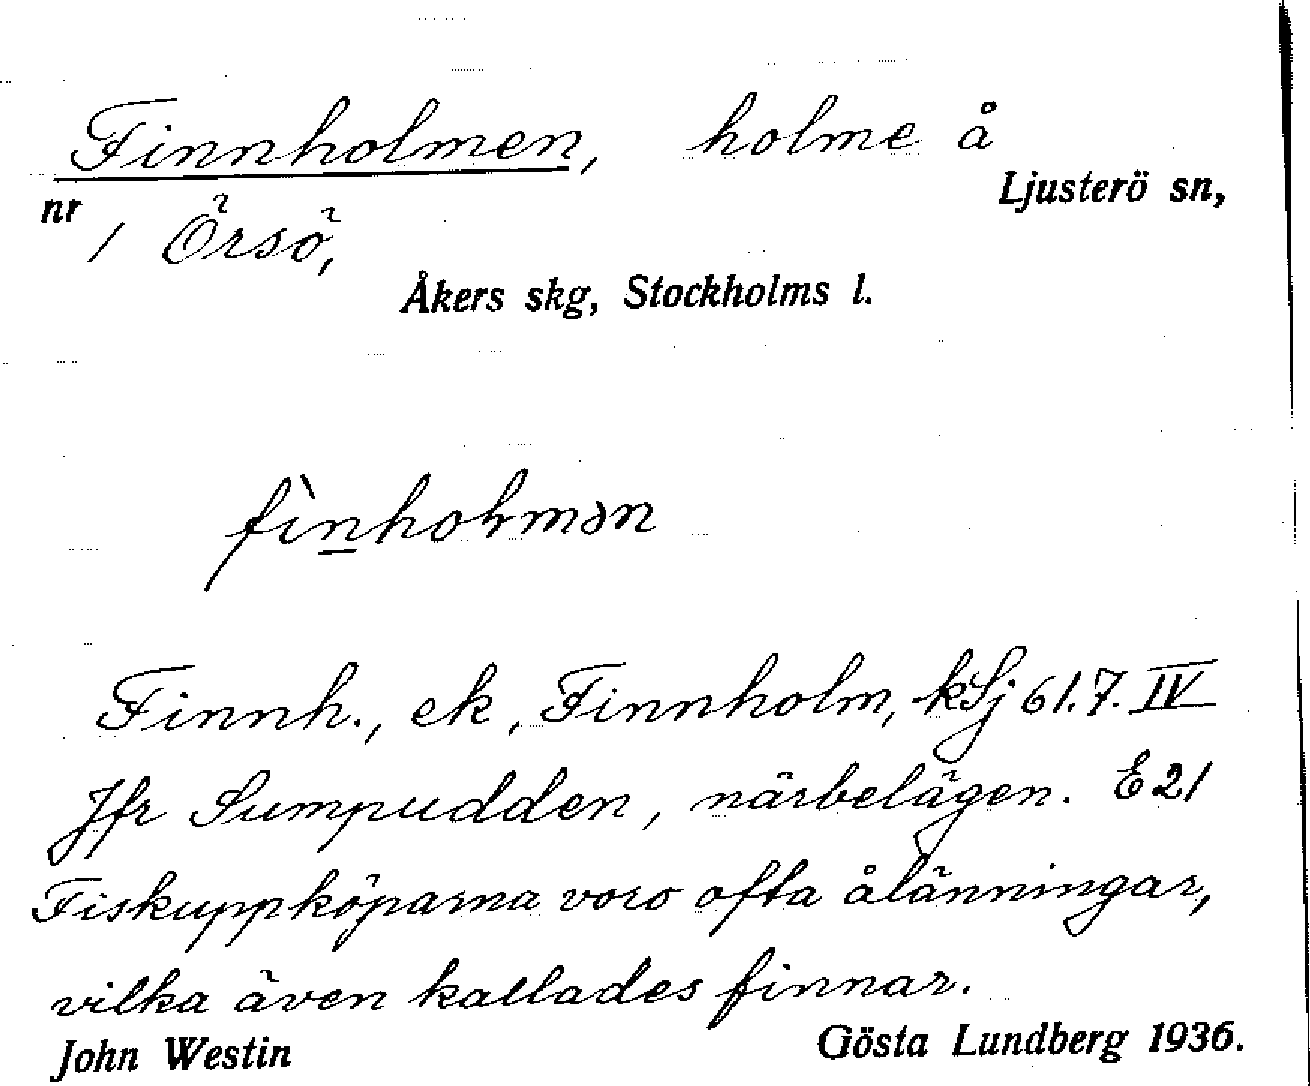 Finnholmen, holme å
Ljusterö sn,
nr 1 Örsö,
Åkers skg, Stockholms l.
fìn̲holmən
Finnh., ek, Finnholm, kSj 61.7.IV
Jfr Sumpudden, närbelägen. E21
Fiskuppköparna voro ofta ålänningar,
vilka även kallades finnar.
John Westin Gösta Lundberg 1936.